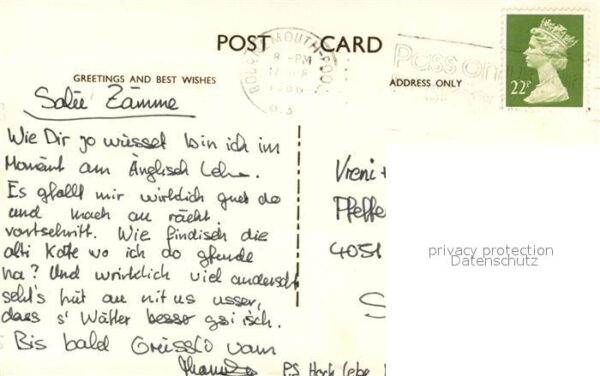 POST CARD
BOURNEMOUTH-POOLE
8 - PM
1986
Pass on
22P
GREETINGS AND BEST WISHES
ADDRESS ONLY
Salü Zämme
Wie Dir jo wüsset bin ich im
Momänt am Änglisch Lehre.
Es gfallt mir würklich guet do
und mach au rächt
vortschritt. Wie findisch die
alti Kate wo ich do gfunde
ha? Und würklich viel anderscht
seht's hüt au nit us usser,
dass s' Wätter besser gsi isch.
Bis bald Grüssli vom
P.S Hoch Lebe
Vreni +
Pfeffe
4051
S
privacy protection
Datenschutz